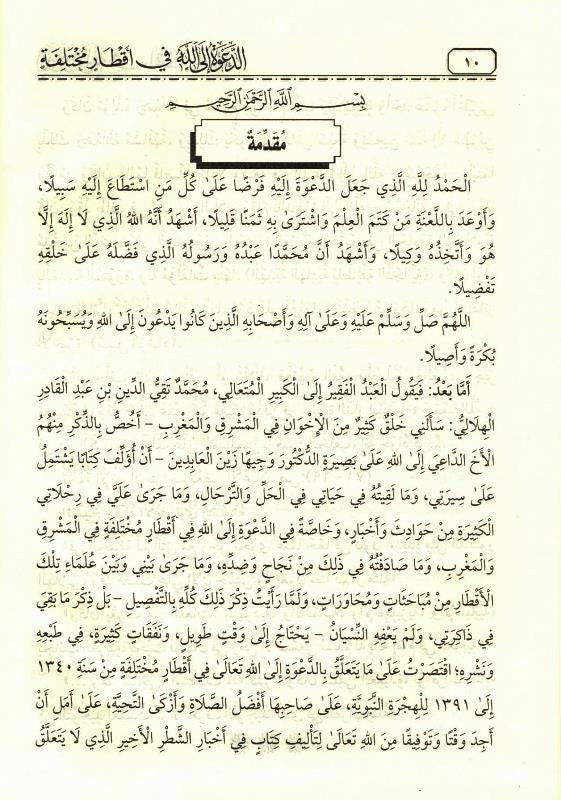 ١٠
الدَّعْوَةُ إِلَى اللهِ فِي أَقْطَارٍ مُخْتَلِفَةٍ
بِسْمِ اللَّهِ الرَّحْمَنِ الرَّحِيمِ
مُقَدِّمَةٌ
الْحَمْدُ لِلَّهِ الَّذِي جَعَلَ الدَّعْوَةَ إِلَيْهِ فَرْضًا عَلَىٰ كُلِّ مَنِ اسْتَطَاعَ إِلَيْهِ سَبِيلًا،
وَأَوْعَدَ بِاللَّعْنَةِ مَنْ كَتَمَ الْعِلْمَ وَاشْتَرَىٰ بِهِ ثَمَنًا قَلِيلًا، أَشْهَدُ أَنَّهُ اللهُ الَّذِي لَا إِلَهَ إِلَّا
هُوَ وَأَتَّخِذُهُ وَكِيلًا، وَأَشْهَدُ أَنَّ مُحَمَّدًا عَبْدُهُ وَرَسُولُهُ الَّذِي فَضَّلَهُ عَلَىٰ خَلْقِهِ
تَفْضِيلًا.
اللَّهُمَّ صَلِّ وَسَلِّمْ عَلَيْهِ وَعَلَىٰ آلِهِ وَأَصْحَابِهِ الَّذِينَ كَانُوا يَدْعُونَ إِلَىٰ اللهِ وَيُسَبِّحُونَهُ
بُكْرَةً وَأَصِيلًا.
أَمَّا بَعْدُ: فَيَقُولُ الْعَبْدُ الْفَقِيرُ إِلَىٰ الْكَبِيرِ الْمُتَعَالِي، مُحَمَّدٌ تَقِيُّ الدِّينِ بْنِ عَبْدِ الْقَادِرِ
الْهِلَالِيُّ: سَأَلَنِي خَلْقٌ كَثِيرٌ مِنَ الْإِخْوَانِ فِي الْمَشْرِقِ وَالْمَغْرِبِ – أَخُصُّ بِالذِّكْرِ مِنْهُمُ
الْأَخَ الدَّاعِيَ إِلَىٰ اللهِ عَلَىٰ بَصِيرَةٍ الدُّكْتُورَ وَجِيهًا زَيْنَ الْعَابِدِينَ – أَنْ أُؤَلِّفَ كِتَابًا يَشْتَمِلُ
عَلَىٰ سِيرَتِي، وَمَا لَقِيتُهُ فِي حَيَاتِي فِي الْحَلِّ وَالتَّرْحَالِ، وَمَا جَرَىٰ عَلَيَّ فِي رِحْلَاتِي
الْكَثِيرَةِ مِنْ حَوَادِثَ وَأَخْبَارٍ، وَخَاصَّةً فِي الدَّعْوَةِ إِلَىٰ اللهِ فِي أَقْطَارٍ مُخْتَلِفَةٍ فِي الْمَشْرِقِ
وَالْمَغْرِبِ، وَمَا صَادَفْتُهُ فِي ذَلِكَ مِنْ نَجَاحٍ وَضِدِّهِ، وَمَا جَرَىٰ بَيْنِي وَبَيْنَ عُلَمَاءِ تِلْكَ
الْأَقْطَارِ مِنْ مُبَاحَثَاتٍ وَمُحَاوَرَاتٍ، وَلَمَّا رَأَيْتُ ذِكْرَ ذَلِكَ كُلِّهِ بِالتَّفْصِيلِ – بَلْ ذِكْرَ مَا بَقِيَ
فِي ذَاكِرَتِي، وَلَمْ يَعْفِهِ النِّسْيَانُ – يَحْتَاجُ إِلَىٰ وَقْتٍ طَوِيلٍ، وَنَفَقَاتٍ كَثِيرَةٍ، فِي طَبْعِهِ
وَنَشْرِهِ؛ اقْتَصَرْتُ عَلَىٰ مَا يَتَعَلَّقُ بِالدَّعْوَةِ إِلَىٰ اللهِ تَعَالَىٰ فِي أَقْطَارٍ مُخْتَلِفَةٍ مِنْ سَنَةِ ١٣٤٠
إِلَىٰ ١٣٩١ لِلْهِجْرَةِ النَّبَوِيَّةِ، عَلَىٰ صَاحِبِهَا أَفْضَلُ الصَّلَاةِ وَأَزْكَىٰ التَّحِيَّةِ، عَلَىٰ أَمَلِ أَنْ
أَجِدَ وَقْتًا وَتَوْفِيقًا مِنَ اللهِ تَعَالَىٰ لِتَأْلِيفِ كِتَابٍ فِي أَخْبَارِ الشَّطْرِ الْأَخِيرِ الَّذِي لَا يَتَعَلَّقُ